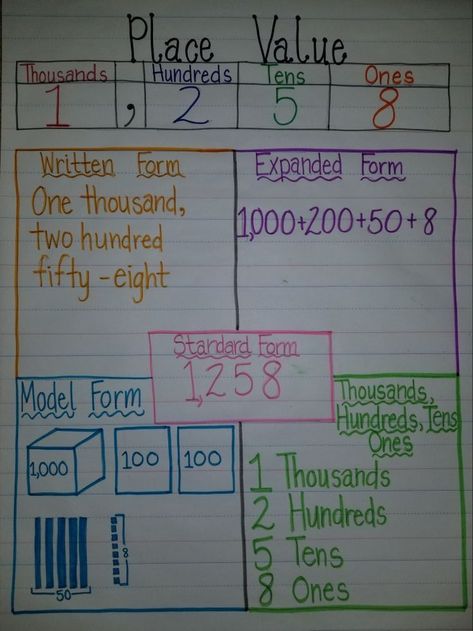 Place Value
Thousands Hundreds Tens Ones
1 , 2 5 8
Written Form
One thousand,
two hundred
fifty-eight
Expanded Form
1,000+200+50+8
Standard Form
1,258
Model Form
1,000 100 100
50
8
Thousands,
Hundreds, Tens
Ones
1 Thousands
2 Hundreds
5 Tens
8 Ones